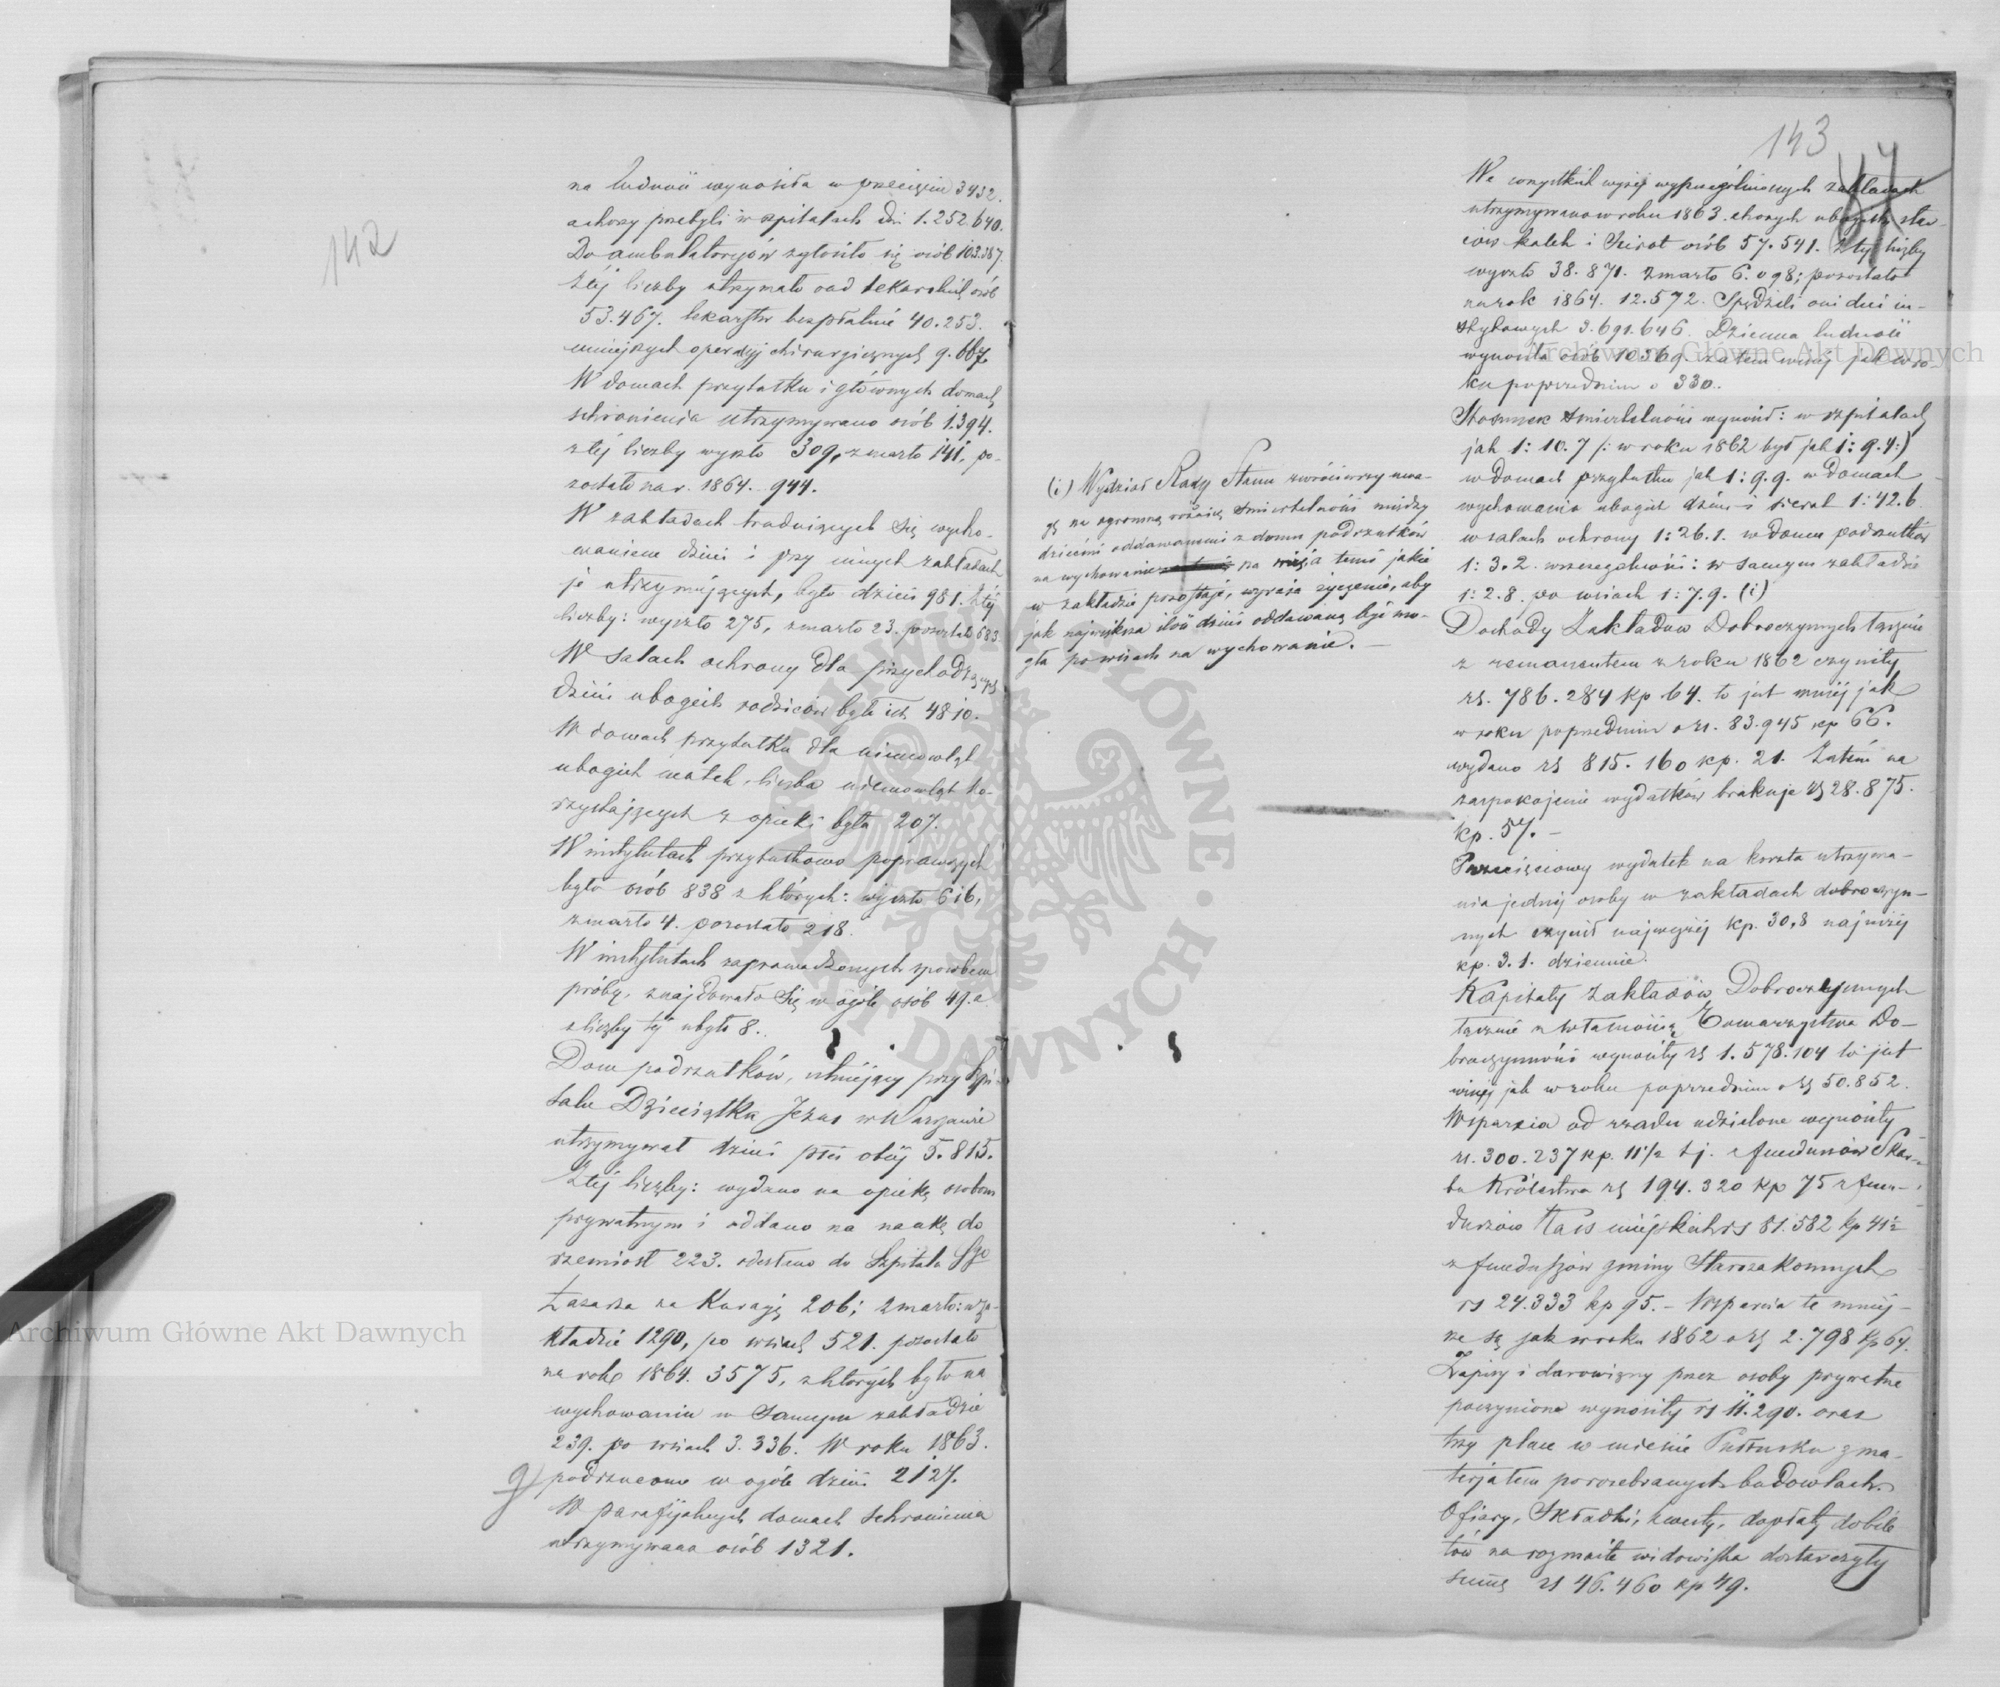 142
na ludność wynosiła w przecięciu 3432.
a chorzy przebyli w szpitalach dni 1.252.640.
Do ambulatoryów zgłosiło się osób 103.387.
Z tej liczby otrzymało rad lekarskich osób
53.467. lekarstw bezpłatnie 40.253.
mniejszych operacyj chirurgicznych 9.667.
W domach przytułku i głównych domach
schronienia utrzymywano osób 1.394.
z tej liczby wyszło 309, zmarło 141, po-
zostało na r. 1864. 944.
W zakładach trudniących się wycho-
waniem dzieci i przy innych zakładach
je utrzymujących, było dzieci 981. Z tej
liczby: wyszło 275, zmarło 23. pozostało 683.
W Salach ochrony dla przychodzących
dzieci ubogich rodziców było ich 4810.
W domach przytułku dla niemowląt
ubogich matek, liczba niemowląt ko-
rzystających z opieki była 207.
W instytutach przytułkowo poprawczych
było osób 838 z których: wyszło 616,
zmarło 4. pozostało 218.
W instytutach zaprowadzonych sposobem
próby, znajdowało się w ogóle osób 49. a
z liczby tej ubyło 8.
Dom podrzutków, istniejący przy Szpi-
talu Dzieciątka Jezus w Warszawie
utrzymywał dzieci płci obiej 5.815.
Z tej liczby: wydano na opiekę osobom
prywatnym i oddano na naukę do
rzemiosł 223. odesłano do Szpitala Sgo
Łazarza na Kuracyę 206; zmarło: w za-
kładzie 1290, po wsiach 521. pozostało
na rok 1864. 3575, z których było na
wychowaniu w samym zakładzie
239. po wsiach 3.336. W roku 1863.
g) podrzucono w ogóle dzieci 2127.
W parafijalnych domach schronienia
utrzymywano osób 1321.
143
We wszystkich wyżej wyszczególnionych zakładach
utrzymywano w roku 1863. chorych ubogich, star-
ców kalek i Sierot osób 57.541. z tej liczby
wyszło 38.871. zmarło 6.098; pozostało
na rok 1864. 12.572. Spędzili oni dni in-
stytowych 3.691.646. Dzienna ludność
wynosiła osób 10.369. zatem więcej jak w ro-
ku poprzednim o 330.
Stosunek śmiertelności wynosił: w szpitalach
jak 1: 10.7 /: w roku 1862 był jak 1: 9.4:/
w domach przytułku jak 1: 9.9. w domach
wychowania ubogich dzieci i sierot 1: 42.6
w salach ochrony 1: 26.1. w Domu podrzutków
1: 3.2. w szczególności: w samym zakładzie
1: 2.8. po wsiach 1: 7.9. (i)
(i) Wydział Rady Stanu zwróciwszy uwa-
gę na ogromną różnicę śmiertelności między
dziećmi oddawanemi z domu podrzutków
na wychowanie na wieś a temi jakie
w zakładzie pozostają, wyraża życzenie, aby
jak największa ilość dzieci oddawaną być mo-
gła po wsiach na wychowanie. —
Dochody Zakładów Dobroczynnych łącznie
z remanentem z roku 1862 czyniły
rs. 786.284 kp 64. to jest mniej jak
w roku poprzednim o rs. 83.945 kp 66.
wydano rs 815.160 kp. 21. Zatem na
zaspokojenie wydatków brakuje rs 28.875.
kp. 57. —
Przecięciowy wydatek na koszta utrzyma-
nia jednej osoby w zakładach dobroczyn-
nych czynił najwyżej kp. 30,8 najniżej
kp. 3.1. dziennie.
Kapitały Zakładów Dobroczynnych
łącznie z własnością Towarzystwa Do-
broczynności wynosiły rs 1.578.104 to jest
więcej jak w roku poprzednim o rs 50.852.
Wsparcia od rządu udzielone wynosiły
rs. 300.237 kp. 11½ tj. z funduszów Skar-
bu Królestwa rs 194.320 kp 75 z fun-
duszów Kass miejskich rs 81.582 kp 41½
z funduszów gminy Starozakonnych
rs 24.333 kp 95. — Wsparcia te mniej-
sze są jak w roku 1862 o rs 2.798 kp 64.
Zapisy i darowizny przez osoby prywatne
poczynione wynosiły rs 11.290. oraz
trzy place w mieście Pułtusku z ma-
teryałem po rozebranych budowlach.
Ofiary, Składki, kwesty, dopłaty do bile-
tów na rozmaite widowiska dostarczyły
summę rs 46.460 kp 49.
Archiwum Główne Akt Dawnych
Archiwum Główne Akt Dawnych
ARCHIWUM GŁÓWNE AKT DAWNYCH